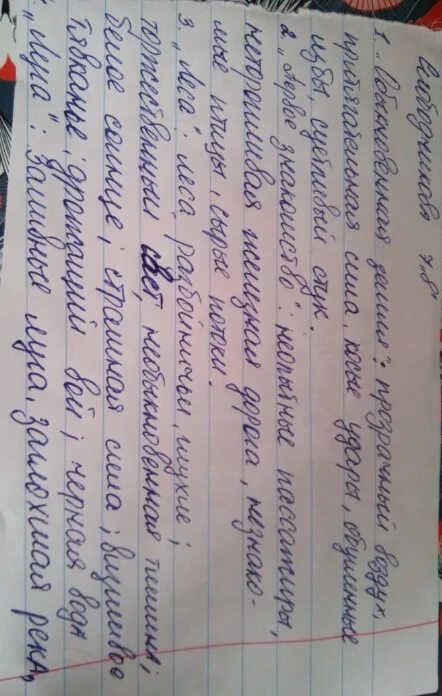 Слободчикова 7 „в"
1. „Обыкновенная земля": прозрачный воздух,
притягательная сила, косые удары, обугленные
избы, суетливый стук.
2. „Первое знакомство": неопытные пассажиры,
неторопливая железная дорога, незнако-
мые птицы, сырые потоки.
3. „Леса": леса разбойничьи, глухие;
торжественный свет, необыкновенная тишина;
белое солнце; страшная сила; визгливое
тявканье; дрожащий вой; черная вода
„Луга": Заливные луга, заглохшая река,